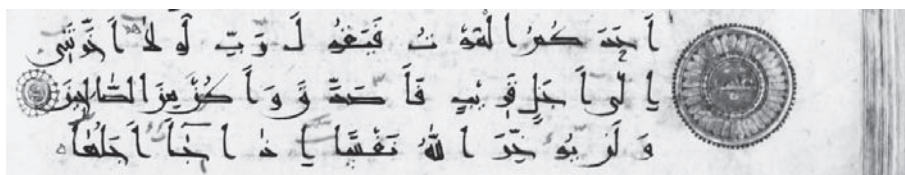 أَحَدَكُمُ الْمَوْتُ فَيَقُولَ رَبِّ لَوْلَا أَخَّرْتَنِي
إِلَى أَجَلٍ قَرِيبٍ فَأَصَّدَّقَ وَأَكُنْ مِنَ الصَّالِحِينَ
وَلَنْ يُؤَخِّرَ اللَّهُ نَفْسًا إِذَا جَاءَ أَجَلُهَا